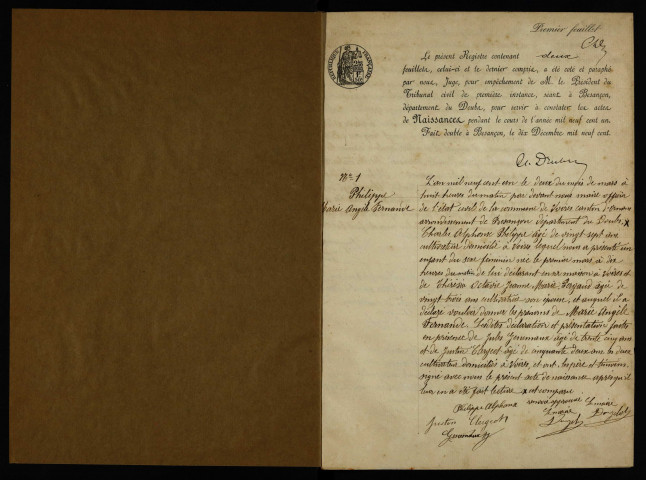 Premier feuillet
Le présent Registre contenant deux
feuillets, celui-ci et le dernier compris, a été coté et paraphé
par nous, Juge, pour empêchement de M. le Président du
Tribunal civil de première instance, séant à Besançon,
département du Doubs, pour servir à constater les actes
de Naissances pendant le cours de l'année mil neuf cent un.
Fait double à Besançon, le dix Décembre mil neuf cent.
No. 1
Philippe
Marie Angèle Fernande
L'an mil neuf cent un le deux du mois de mars à
huit heures du matin par devant nous maire officier
de l'état civil de la commune de Voires canton d'
arrondissement de Besançon département du Doubs, x
Charles Alphonse Philippe âgé de vingt sept ans
cultivateur domicilié à Voires lequel nous a présenté un
enfant du sexe féminin née le premier mars à dix
heures du matin de lui déclarant en sa maison à Voires et
de Thérèse Octavie Jeanne Marie âgée de
vingt trois ans cultivatrice son épouse, et auquel il a
déclaré vouloir donner les prénoms de Marie Angèle
Fernande. Lesdites déclaration et présentation faites
en présence de Jules âgé de trente cinq ans
et de Justin âgé de cinquante deux ans les deux
cultivateurs domiciliés à Voires, et ont, le père et témoins,
signé avec nous le présent acte de naissance après qu'il
leur en a été fait lecture. x est comparu
Philippe Alphonse renvoi approuvé Le maire
Justin Le maire